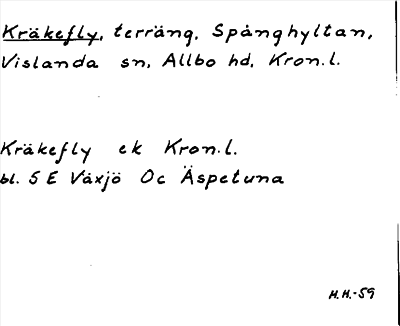 Kräkefly, terräng, Spånghyltan,
Vislanda sn, Allbo hd, Kron. l.
Kräkefly ek Kron. l.
bl. 5 E Växjö Oc Äspetuna
H.H.-59